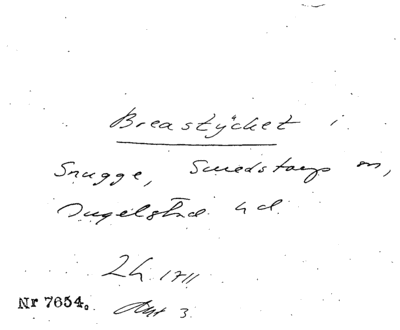 Breastycket i
Snugge, Smedstorps sn,
Ingelstad hd.
2h 1711
Nr 7654. Akt 3